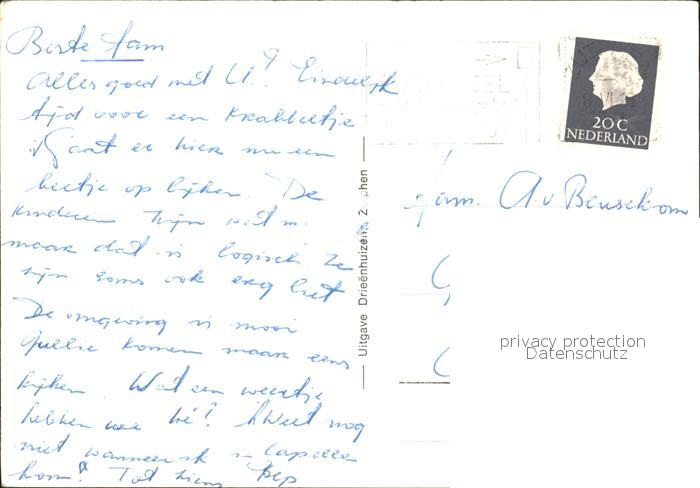 Beste fam
Alles goed met U? Eindelijk
tijd voor een krabbeltje
'K Gaat er hier nu een
beetje op lijken. De
kinderen zijn
maar dat is logisch ze
zijn soms ook erg lief
De omgeving is mooi
Jullie komen maar eens
kijken. Wat een weertje
hebben we hè! Weet nog
niet wanneer ik in Capelle
kom. Tot ziens Bep
Uitgave Drieënhuizen, Z chen
20 C
NEDERLAND
Fam. A v Beusekom
privacy protection
Datenschutz